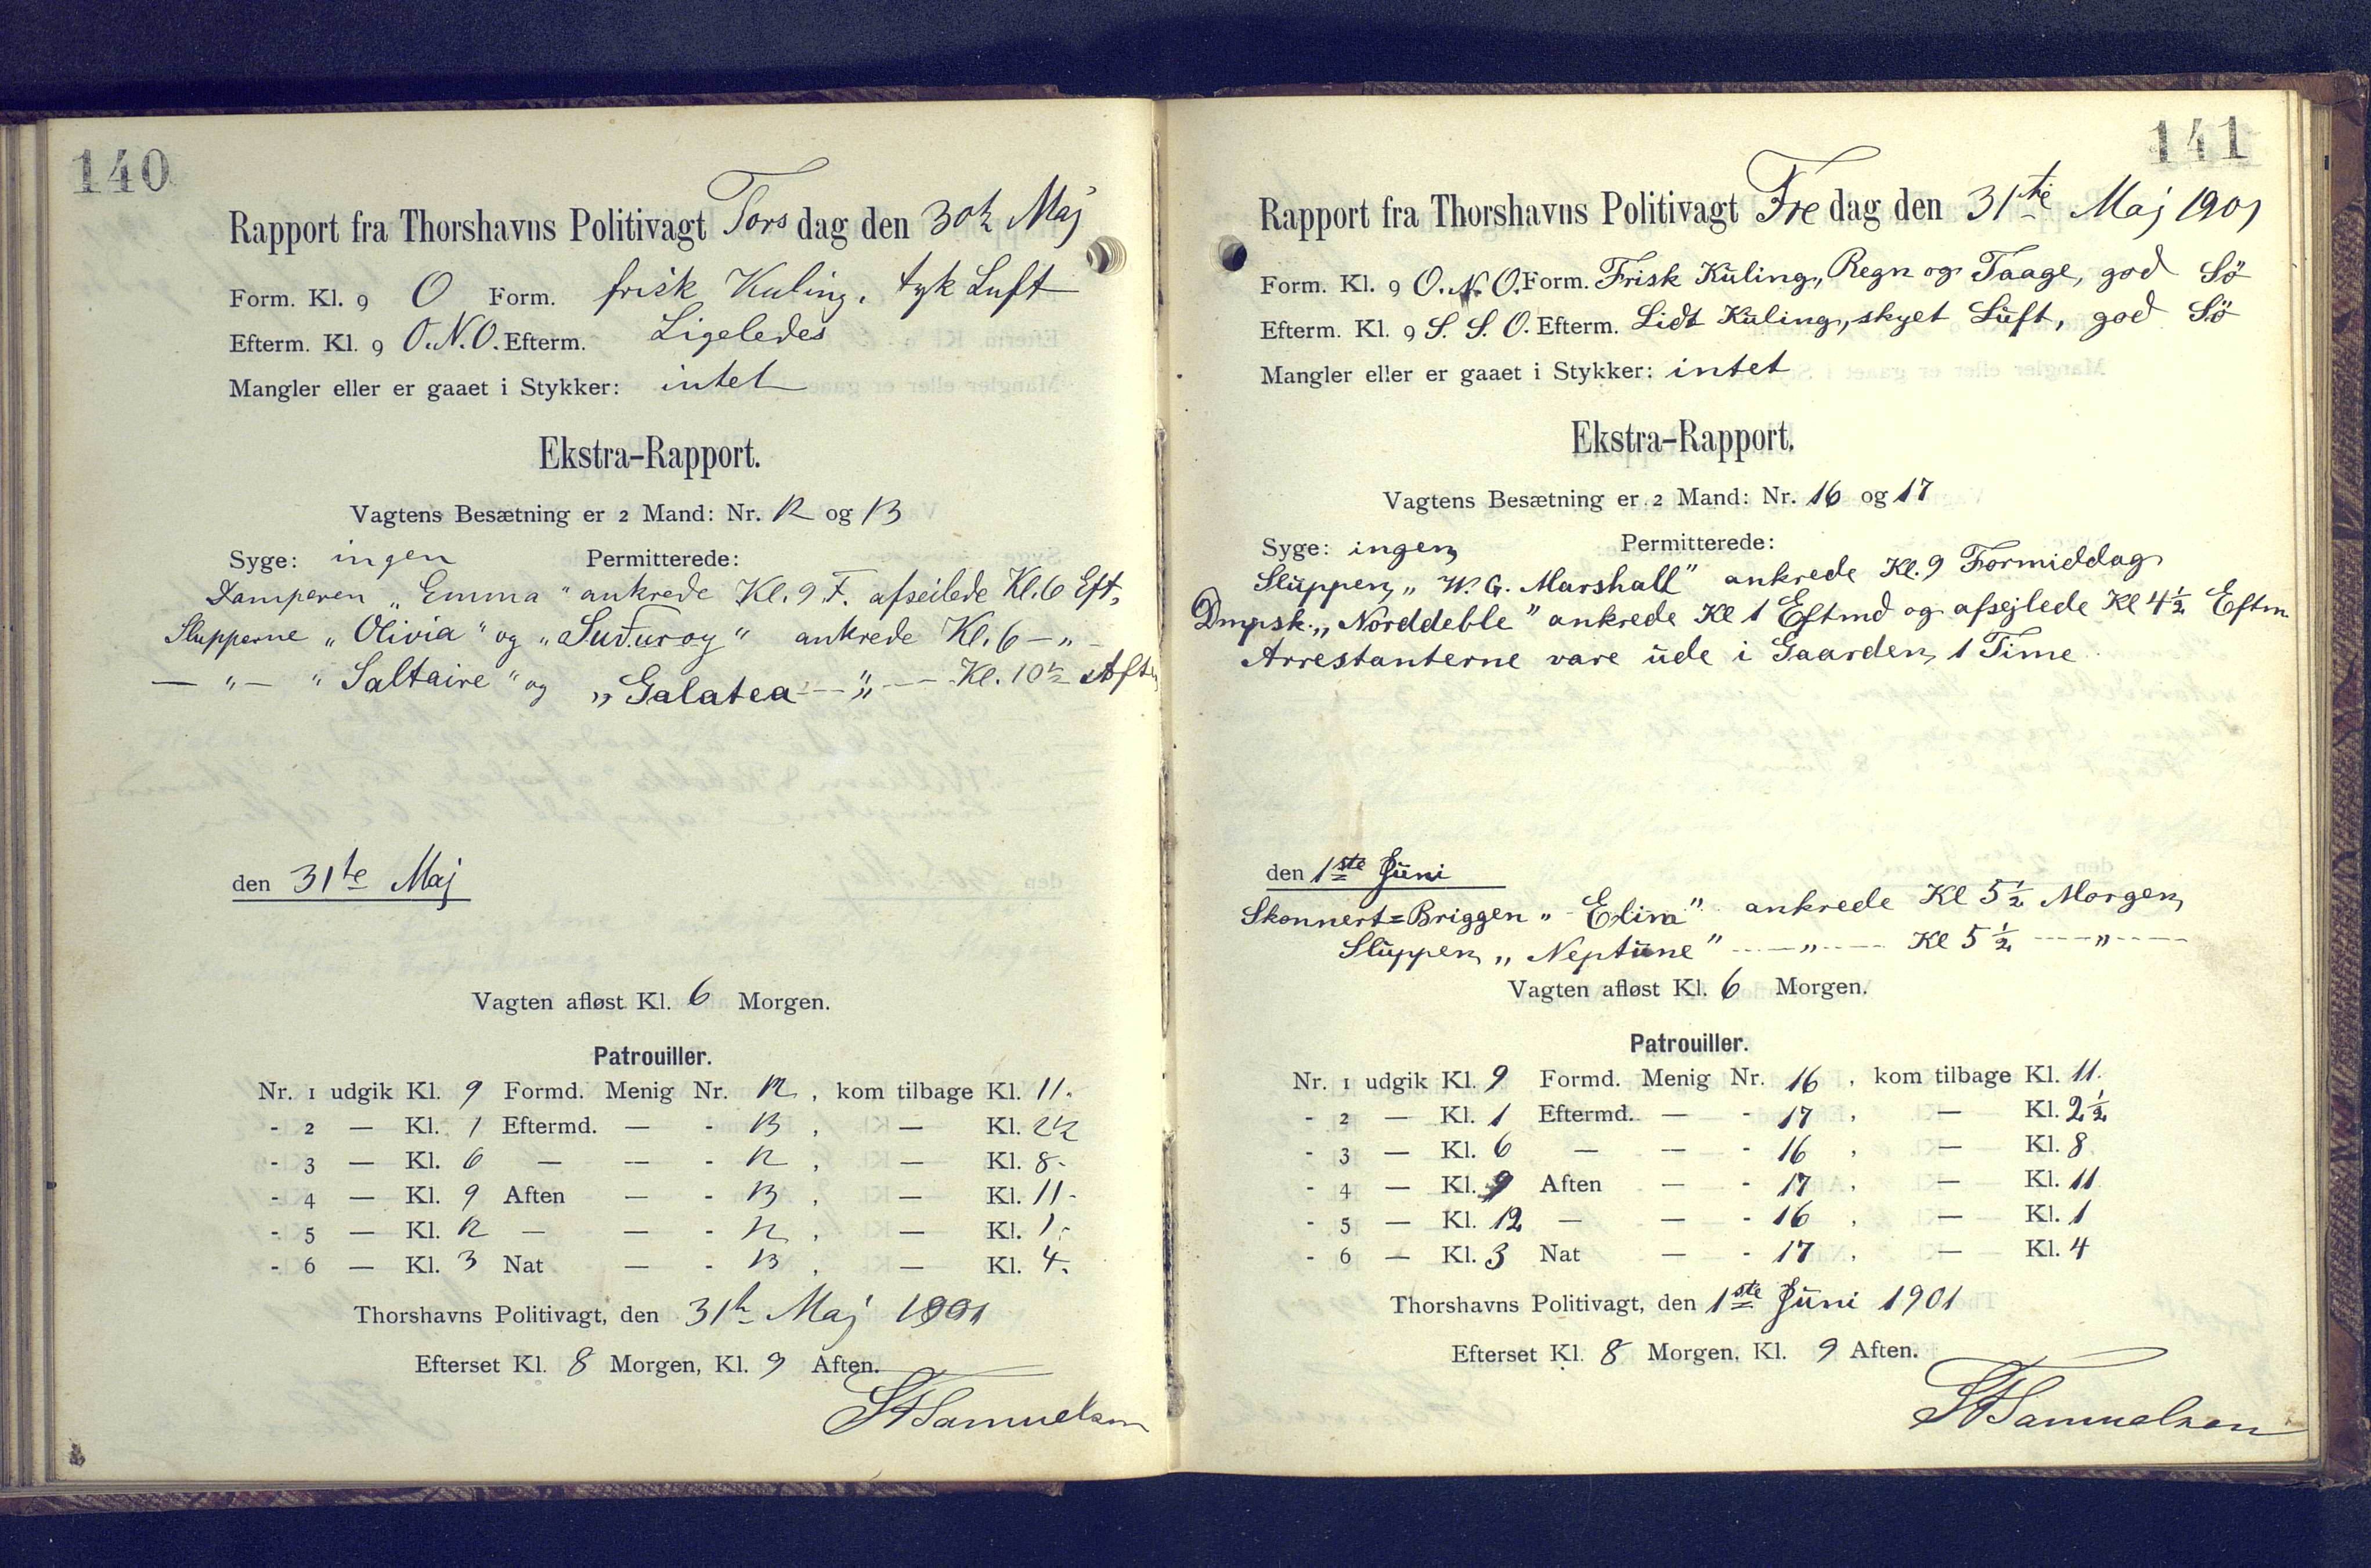 140
Rapport fra Thorshavns Politivagt Torsdag den 30te Maj
Form. Kl. 9 O Form. frisk Kuling, tyk Luft
Efterm. Kl. 9 O.N.O. Efterm. Ligeledes
Mangler eller er gaaet i Stykker: intet
Ekstra-Rapport.
Vagtens Besætning er 2 Mand: Nr. 12 og 13
Syge: ingen Permitterede:
Damperen „Emma" ankrede Kl. 9 F. afseilede Kl. 6 Eft.
Slupperne „Olivia" og „Suđuroy" ankrede Kl. 6 — „ —
— „ — „Saltaire" og „Galatea — „ — Kl. 10½ Aften
den 31te Maj
Vagten afløst Kl. 6 Morgen.
Patrouiller.
Nr. 1 udgik Kl. 9 Formd. Menig Nr. 12, kom tilbage Kl. 11.
- 2 — Kl. 1 Eftermd. — - 13, — Kl. 2½
- 3 — Kl. 6 — — - 12, — Kl. 8.
- 4 — Kl. 9 Aften — - 13, — Kl. 11.
- 5 — Kl. 12 — — - 12, — Kl. 1.
- 6 — Kl. 3 Nat — - 13, — Kl. 4.
Thorshavns Politivagt, den 31te Maj 1901
Efterset Kl. 8 Morgen, Kl. 9 Aften.
Samuelsen
141
Rapport fra Thorshavns Politivagt Fredag den 31te Maj 1901
Form. Kl. 9 O.N.O. Form. Frisk Kuling, Regn og Taage, god Sö
Efterm. Kl. 9 S.S.O. Efterm. Lidt Kuling, skyet Luft, god Sö
Mangler eller er gaaet i Stykker: intet
Ekstra-Rapport.
Vagtens Besætning er 2 Mand: Nr. 16 og 17
Syge: ingen Permitterede:
Sluppen „W. G. Marshall" ankrede Kl. 9 Formiddag
Dmpsk. „Norddeble" ankrede Kl 1 Eftmd og afsejlede Kl 4½ Eftm
Arrestanterne vare ude i Gaarden 1 Time
den 1ste Juni
Skonnert=Briggen „Elina" ankrede Kl 5½ Morgen
Sluppen „Neptune" — „ — Kl 5½ — „ —
Vagten afløst Kl. 6 Morgen.
Patrouiller.
Nr. 1 udgik Kl. 9 Formd. Menig Nr. 16, kom tilbage Kl. 11.
- 2 — Kl. 1 Eftermd. — - 17, — Kl. 2½
- 3 — Kl. 6 — — - 16, — Kl. 8
- 4 — Kl. 9 Aften — - 17, — Kl. 11
- 5 — Kl. 12 — — - 16, — Kl. 1
- 6 — Kl. 3 Nat — - 17, — Kl. 4
Thorshavns Politivagt, den 1ste Juni 1901
Efterset Kl. 8 Morgen, Kl. 9 Aften.
Samuelsen